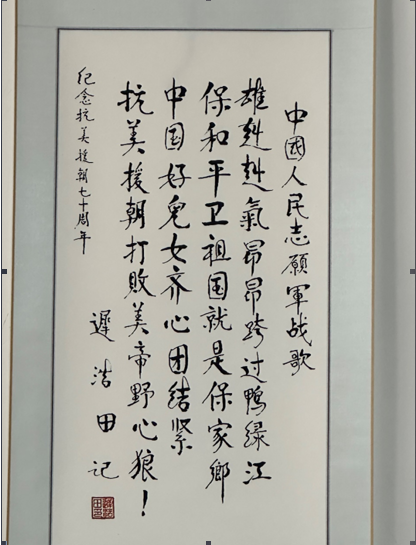 中國人民志願軍战歌
雄赳赳氣昂昂跨过鸭绿江
保和平卫祖国就是保家鄉
中国好兒女齐心团结紧
抗美援朝打败美帝野心狼！
纪念抗美援朝七十周年
遲浩田记